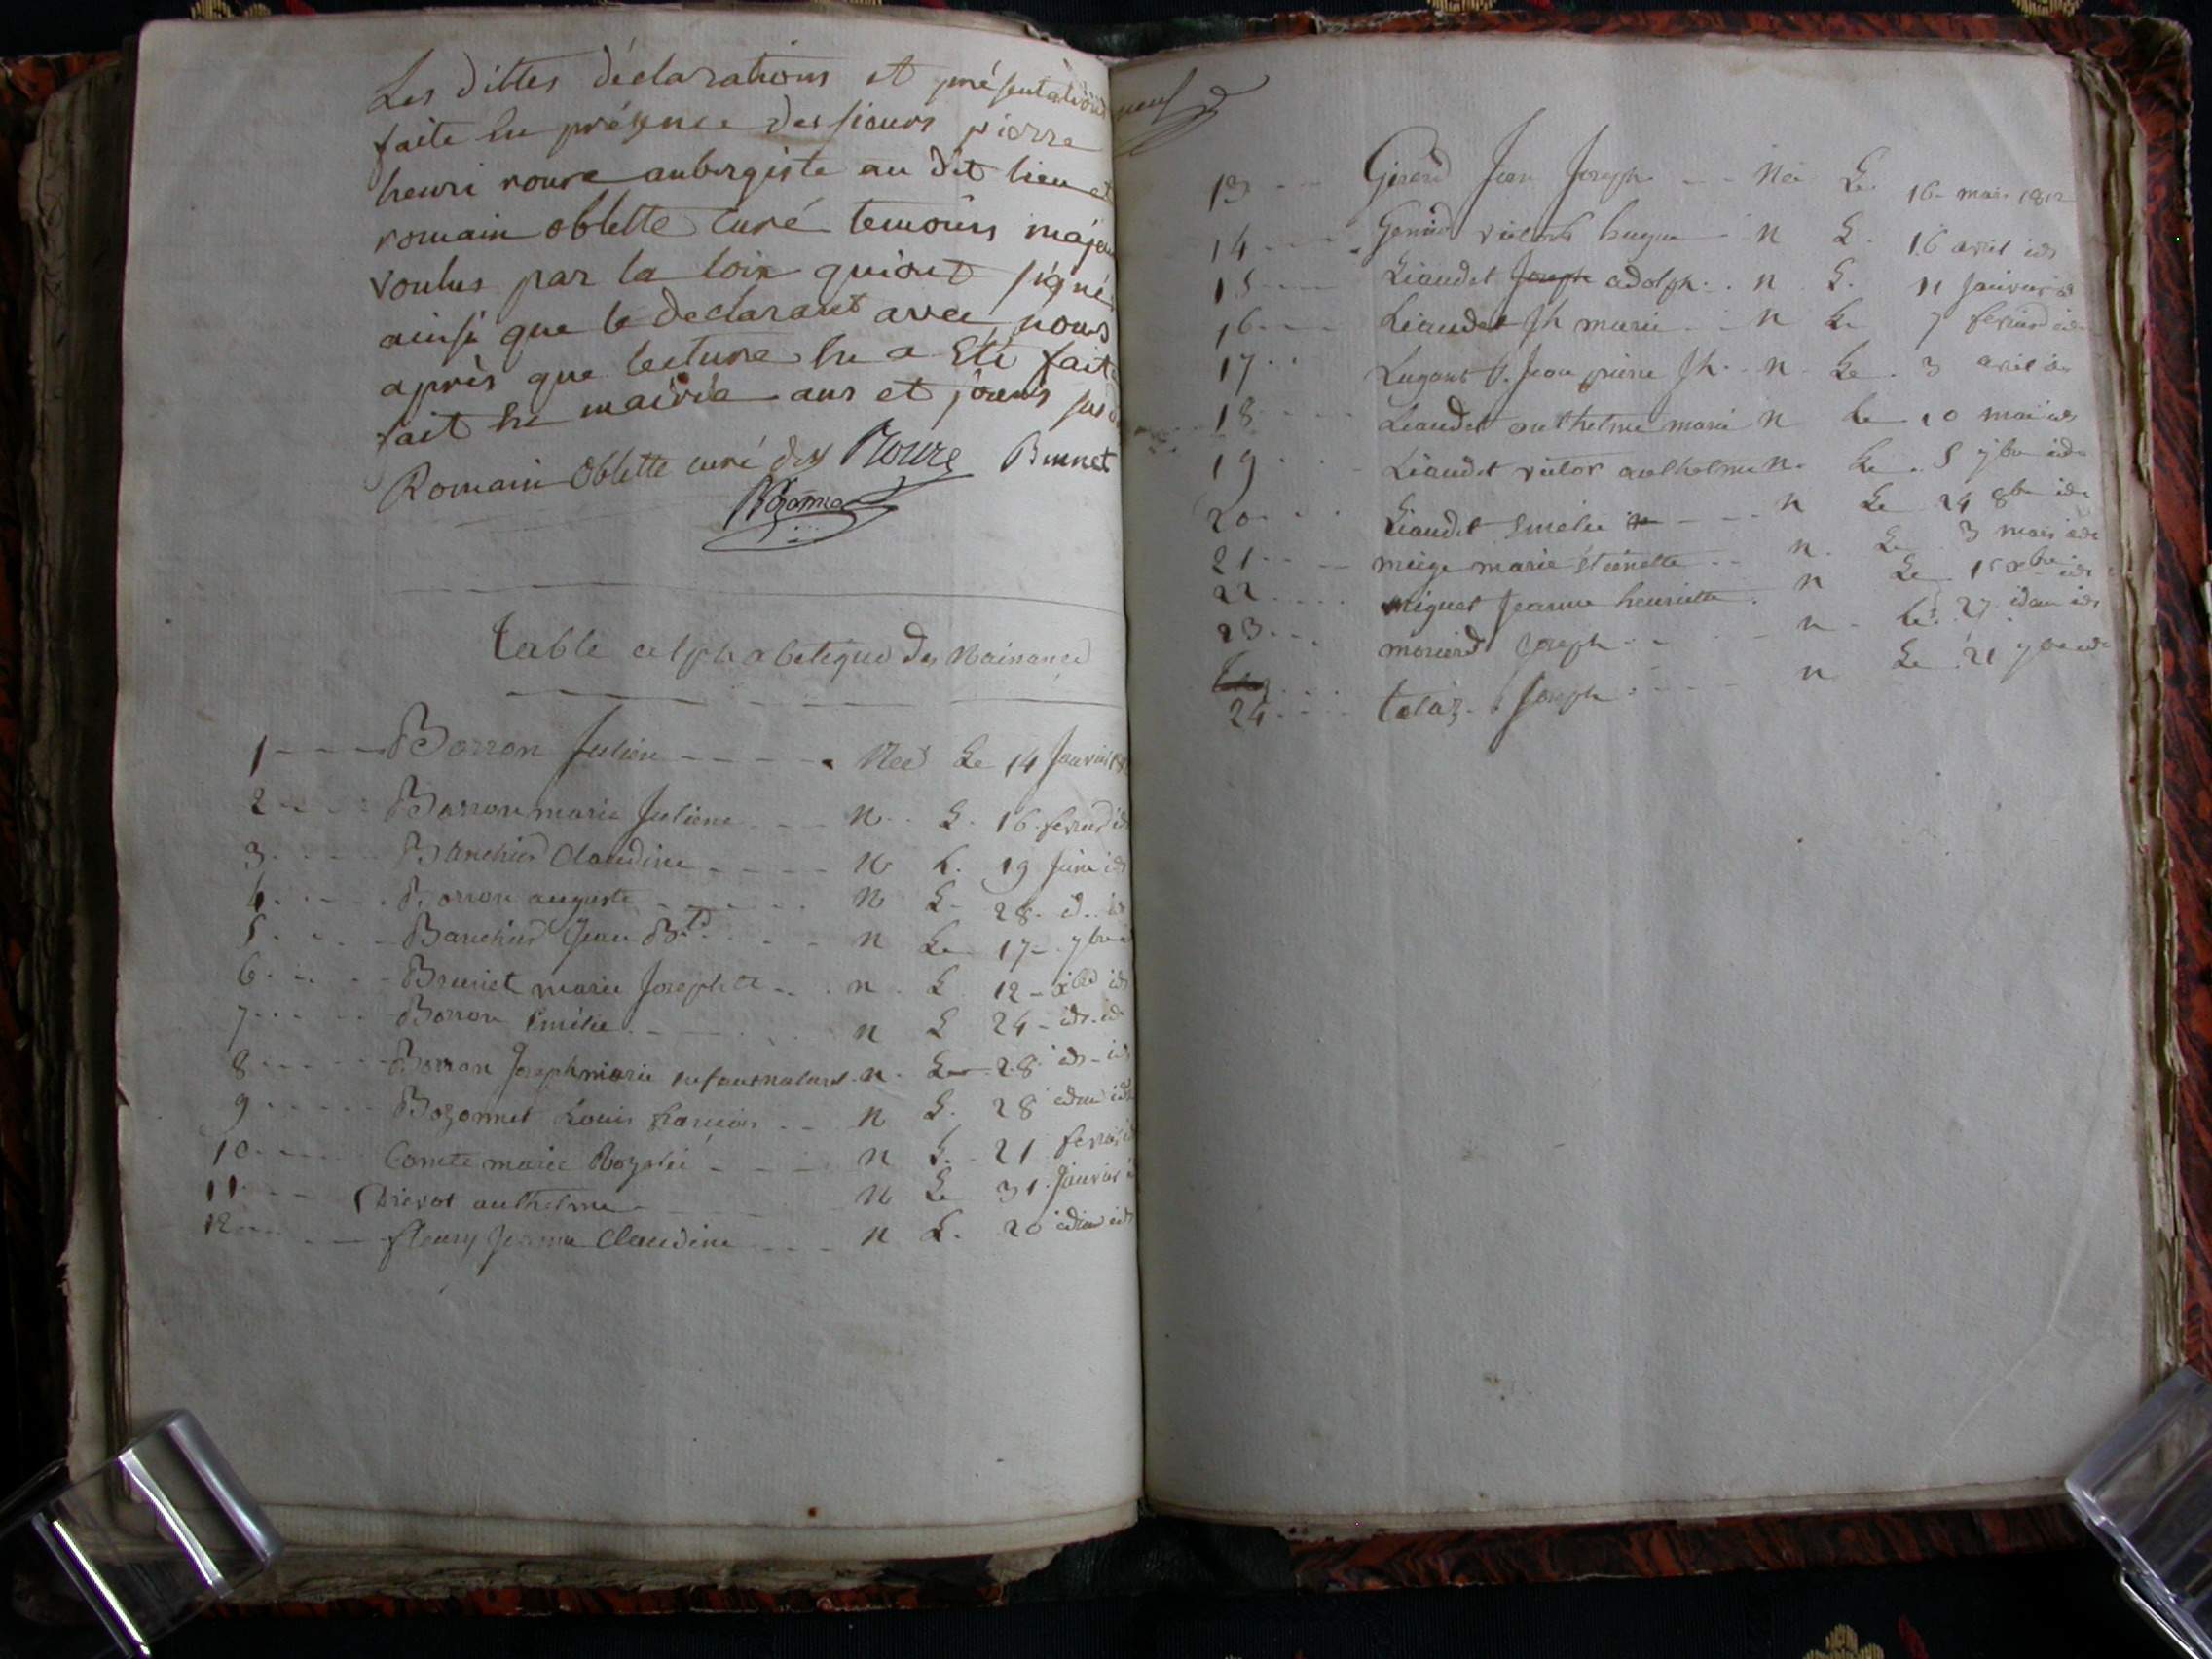 Les dittes déclarations et présentations
faite en présence des sieurs pierre
henri roure aubergiste au dit lieu et
romain oblette curé temoins majeu
voulus par la loix qui ont signé
ainsi que le declarant avec nous
après que lecture en a Eté faite
fait en mairie ans et jours sus d
Romain Oblette curé des Roure Brunet
Bozonnet
table alphabetique des Naisances
1 Borron Julien Née Le 14 Janvier 18
2 Borron marie Juliene N. L. 16 fevrier id
3 Banchier Claudine N L. 19 Juin id
4 Borron auguste N L. 28 id. id
5 Banchier Jean Bte n Le 17 7bre
6 Brunet marie Josephte n L 12 xbre id
7 Borron Emélie n L 24 id. id
8 Borron Joseph marie enfant naturel n. Le 28 id id
9 Bozonnet Louis francois n L. 28 idem id
10 Comte marie Rozalie n L. 21 fevrier
11 Drevot anthelme N Le 31 Janvier
12 fleury Jeanne Claudine n L. 20 idem id
neuf
13 Girard Jean Joseph Née Le 16 mars 1812
14 hugue n L. 16 avril id
15 Liaudet Joseph adolph n L. 11 Janvier id
16 Liaudet Jh marie n Le 7 fevrier id
17 Jean pierre Jh. n Le 3 avril id
18 Liaudet anthelme marie n Le 10 mai id
19 Liaudet victor anthelme n. Le 5 7bre id
20 Liaudet Emelie n Le 24 8bre id
21 miege marie Etienette n. Le 3 mars id
22 miguet Jeanne henriette n Le 15 xbre id
23 Joseph n Le 27 idem id
24 talaz Joseph n Le 21 7bre id